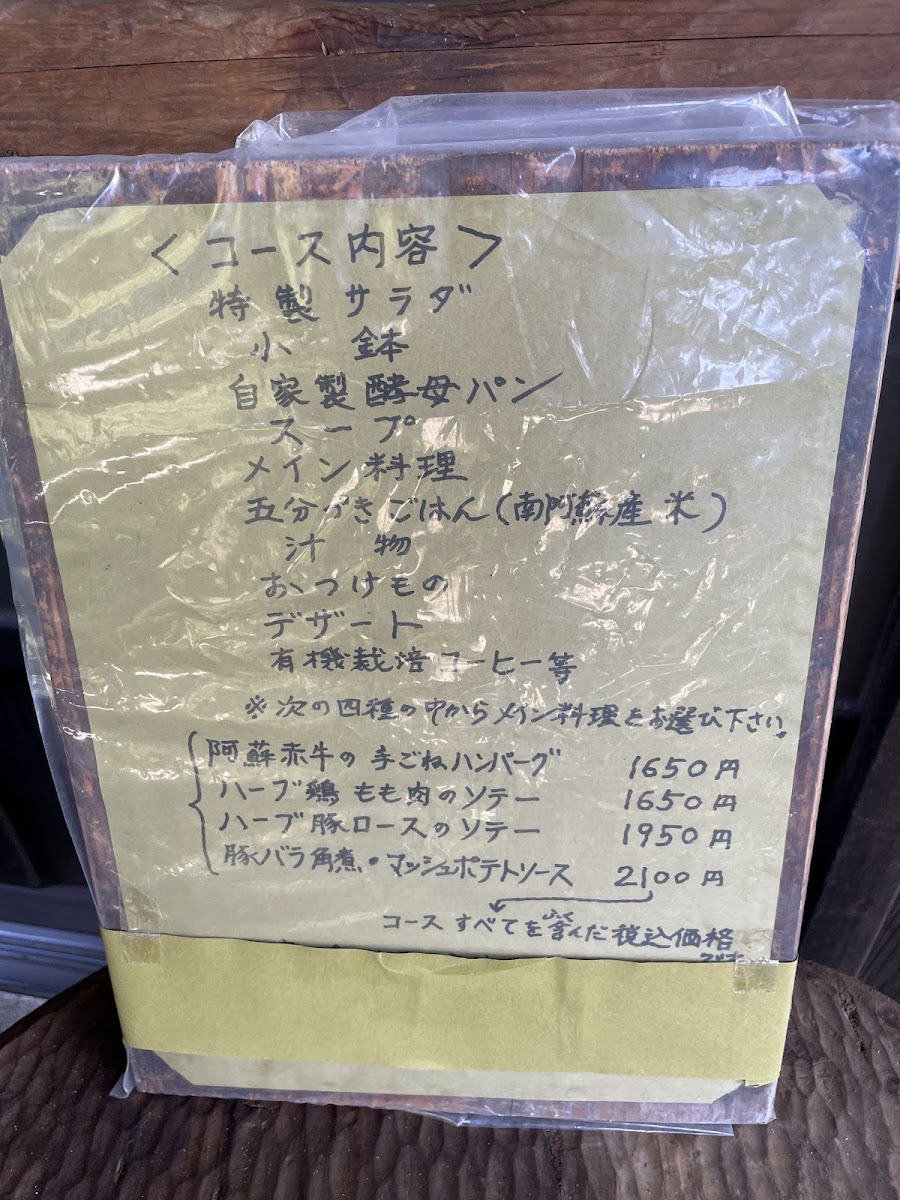 <コース内容>
特製サラダ
小鉢
自家製酵母パン
スープ
メイン料理
五分づきごはん(南阿蘇産米)
汁物
おつけもの
デザート
有機栽培コーヒー等
※次の四種の中からメイン料理をお選び下さい。
阿蘇赤牛の手ごねハンバーグ 1650円
ハーブ鶏もも肉のソテー 1650円
ハーブ豚ロースのソテー 1950円
豚バラ角煮・マッシュポテトソース 2100円
ふく
コースすべてを含んだ税込価格